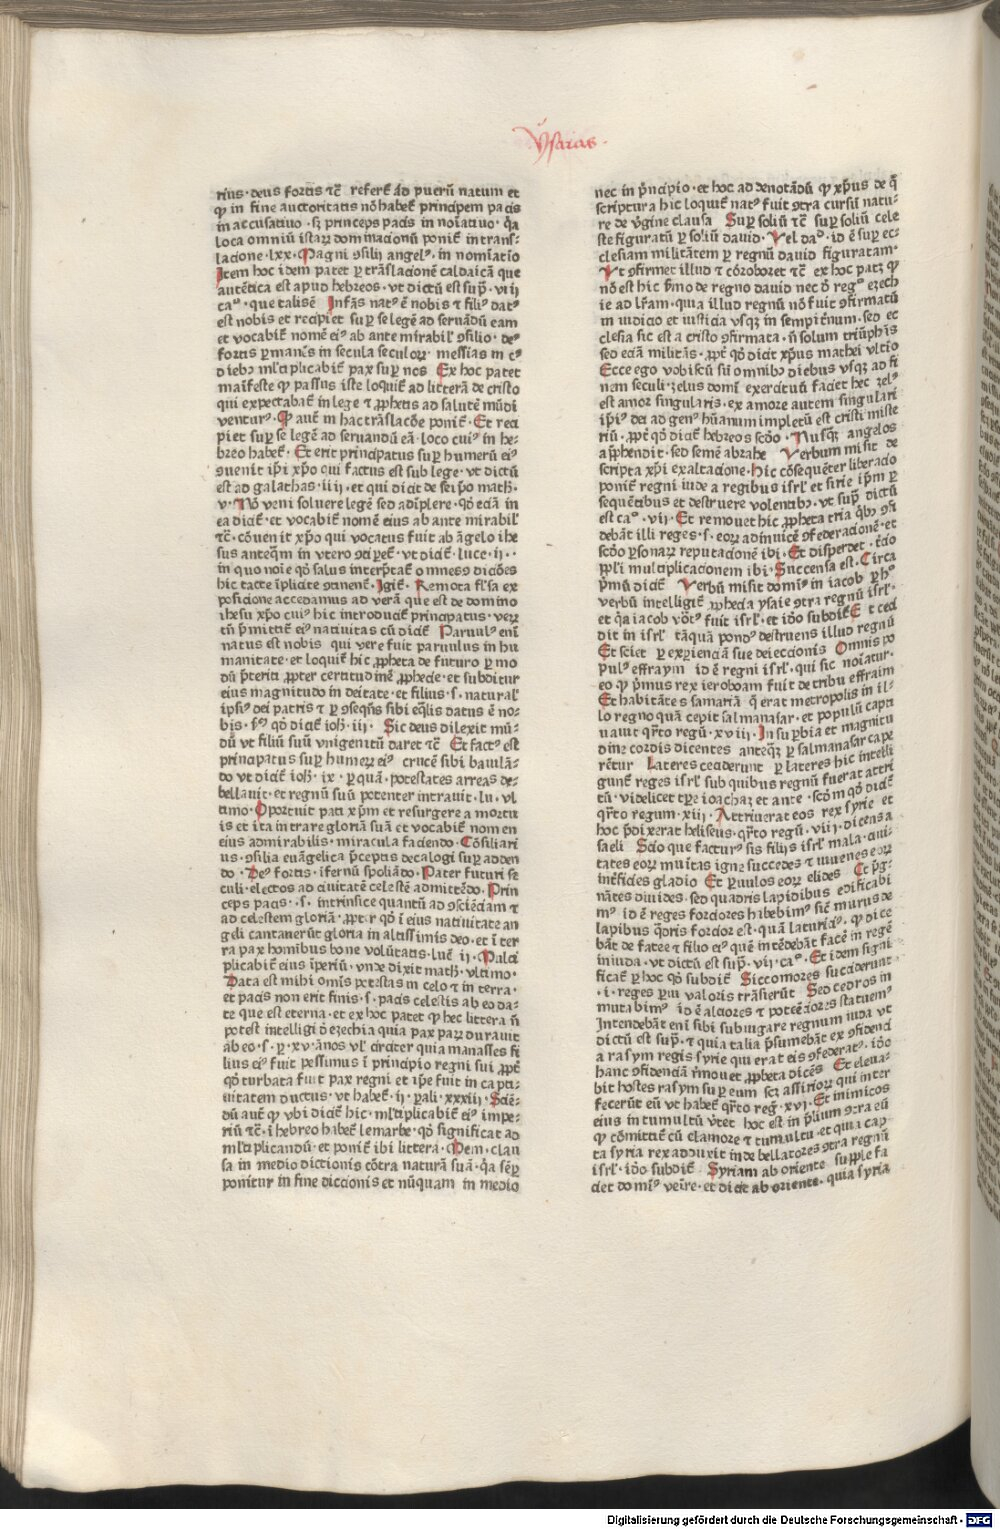 Ysaias
rius · deus fortis ⁊c̄ referẗ ad puerū natum et
ꝙ in fine auctoritatis nō habeť principem pacis
in accusatiuo · sꝫ princeps pacis in noīatiuo · q̄a
loca omniū istaꝝ dominacionū poniť in trans-
lacione · lxx · Magni ꝯsilij angelꝰ · in nomīatio
Item hoc idem patet ꝑ trāslacionē caldaicā que
autētica est apud hebreos · vt dictū est sup̄ · viij
caᵒ · que talis ē Infās natꝰ ē nobis ⁊ filiꝰ datꝰ
est nobis et recipiet suꝑ se legē ad seruādū eam
et vocabiť nomē eiꝰ ab ante mirabil̓ ꝯsilio · deꝰ
fortis ꝑmanēs in secula seculoꝝ · messias in cꝰ
diebꝫ ml̓tiplicabiť pax suꝑ nos Ex hoc patet
maīfeste ꝙ passus iste loquiť ad litterā de cristo
qui expectabať in lege ⁊ ꝓphetis ad salutē mūdi
venturꝰ · Qꝫ autē in hac trāslacōe poniť · Et reci
piet suꝑ se legē ad seruandū eā · loco cuiꝰ in he-
breo habeť · Et erit principatus suꝑ humerū eiꝰ
ꝯuenit ip̄i xp̄o qui factus est sub lege · vt dictū
est ad galathas · iiij · et qui dicit de seip̄o math̓ ·
v · Nō veni soluere legē sed adīplere · qd̄ eciā in
ea diciť · et vocabiť nomē eius ab ante mirabil̓
⁊c̄ · cōuenit xp̄o qui vocatus fuit ab āgelo ihe
sus anteq̄m in vtero ꝯciꝑeť · vt diciť · luce · ij · ·
in quo noīe qd̄ salus interp̄tať omnes ꝯdicōes
hic tacte īplicite ꝯtinenť · Igiť · Remota fl̓sa ex
posicione accedamus ad verā que est de domino
ihesu xp̄o cuiꝰ hic introduciť principatus · veꝝ
tn̄ p̄mittiť eiꝰ natiuitas cū diciť Paruulꝰ enī
natus est nobis qui vere fuit paruulus in hu
manitate · et loquiť hic ꝓpheta de futuro ꝑ mo
dū p̄teriti ꝓpter certitudinē ꝓphecie · et subditur
eius magnitudo in deitate · et filius · s · natural̓
ipsiꝰ dei patris ⁊ ꝑ ꝯseq̄ns sibi eq̄lis datus ē no-
bis · sᵐ qd̄ diciť ioh̓ · iij · Sic deus dilexit mū-
dū vt filiū suū vnigenitū daret ⁊c̄ Et factꝰ est
principatus suꝑ humeꝝ eiꝰ crucē sibi baiulā-
do vt diciť ioh̓ · ix · ꝑ quā · potestates aereas de-
bellauit · et regnū suū potenter intrauit · lu · vl
timo · Oportuit pati xp̄m et resurgere a mortu
is et ita intrare gloriā suā et vocabiť nomen
eius admirabilis · miracula faciendo · Cōsiliari
us · ꝯsilia euāgelica p̄ceptis decalogi suꝑ adden
do · Deꝰ fortis · īfernū spoliādo · Pater futuri se
culi · electos ad ciuitatē celestē admittēdo · Prin
ceps pacis · s · intrinsice quantū ad ꝯsciēciam ⁊
ad celestem gloriā · ꝓpter qd̄ ī eius natiuitate an
geli cantauerūt gloria in altissimis deo · et ī ter
ra pax hominibus bone volūtatis · luce̓ ij · Multi
plicabiť eius īperiū · vnde dixit math̓ · vltimo ·
Data est mihi om̄is potestas in celo ⁊ in terra ·
et pacis non erit finis · s · pacis celestis ab eo da-
te que est eterna · et ex hoc patet ꝙ hec littera n̄
potest intelligi d̓ ezechia quia pax paꝝ durauit
ab eo · s · ꝑ · xv · ānos vl̓ circiter quia manasses fi
lius eiꝰ fuit pessimus ī principio regni sui ꝓpť
qd̄ turbata fuit pax regni et ip̄e fuit in capti-
uitatem ductus · vt habeť · ij · ꝑali · xxxiij · Sciē-
dū autē ꝙ vbi diciť hic · ml̓tiplicabiť eiꝰ impe-
riū ⁊c̄ · ī hebreo habeť lemarbe · qd̄ significat ad
ml̓tiplicandū · et poniť ibi littera · Mem · clau
sa in medio dictionis cōtra naturā suā · q̄a semꝑ
ponitur in fine diccionis et nūquam in medio
nec in p̄ncipio · et hoc ad denotādū ꝙ xp̄us de q̄
scriptura hic loquiť natꝰ fuit ꝯtra cursū natu-
re de v̓gine clausa Suꝑ soliū ⁊c̄ suꝑ soliū cele
ste figuratū ꝑ soliū dauid · Vel daᵈ · id ē suꝑ ec-
clesiam militātem ꝑ regnū dauid figuratam ·
Vt ꝯfirmet illud ⁊ cōroboret ⁊c̄ ex hoc patꝫ ꝙ
nō est hic s̓mo de regno dauid nec d̓ regᵒ ezech
ie ad lr̄am · quia illud regnū nō fuit ꝯfirmatū
in iudicio et iusticia vsqꝫ in sempit̓num · sed ec
clesia sic est a cristo ꝯfirmata · n̄ solum triūphās
sed eciā militās · ꝓpť qd̄ dicit xp̄us mathei vltio
Ecce ego vobiscū sū omnibꝫ diebus vsqꝫ ad fi
nem seculi · zelus domī exercituū faciet hec zelꝰ
est amor singularis · ex amore autem singulari
ip̄iꝰ dei ad genꝰ hūanum impletū est cristi miste
riū · ꝓpť qd̄ diciť hebreos scd̄o · Nusq̄ꝫ angelos
apphendit · sed semē abrahe Verbum misit de
scripta xp̄i exaltacione · hic cōsequēter liberacio
poniť regni iude a regibus isrl̓ et sirie ip̄m ꝑ
sequētibus et destruere volentibꝫ · vt sup̄ dictū
est caᵒ · vij · Et remouet hic ꝓpheta tria q̄bꝫ ꝯfi
debāt illi reges · s · eoꝝ adinuicē ꝯfederacionē · et
scd̄o ꝑsonaꝝ reputacionē ibi · Et disperdet · t̓cio
pp̄li multiplicacionem ibi · Succensa est · Circa
p̄mū diciť Verbū misit domiꝰ in iacob ꝑ hꝰ
verbū intelligiť ꝓphecia ysaie ꝯtra regnū isrl̓ ·
et q̄a iacob votꝰ fuit isrl̓ · et ido subdiť Et ceci
dit in isrl̓ tāquā pondꝰ destruens illud regnū
Et sciet ꝑ experienciā sue deieccionis Omnis po
pulꝰ effraym id ē regni isrl̓ · qui sic noīatur ·
eo ꝙ p̄mus rex ieroboam fuit de tribu effraim
Et habitātes samariā q̄ erat metropolis in il-
lo regno quā cepit salmanasar · et populū capti
uauit qr̄to regū · xviij · In suꝑbia et magnitu
dine cordis dicentes anteq̄ꝫ ꝑ salmanasar cape
rētur Lateres ceciderunt ꝑ lateres hic intelli
gunť reges isrl̓ sub quibus regnū fuerat attri
tū · videlicet tꝑe ioachaz et ante · scd̄m qd̄ diciť
qr̄to regum · xiij · Attriuerat eos rex syrie et
hoc p̄dixerat heliseus · qr̄to regū · viij · dicens a
saeli Scio que facturꝰ sis filijs isrl̓ mala · ciui-
tates eoꝝ muītas igne succēdes ⁊ iuuenes eoꝝ
int̓ficies gladio Et ꝑuulos eoꝝ elides Et p̄g-
nātes diuides · sed quadris lapidibus edificabi
mꝰ id ē reges forciores habebimꝰ sicť murus de
lapibus q̄dris forcior est · quā laturiciꝰ · ꝙ dice
bāt de facee ⁊ filio eiꝰ quē intēdebāt facē in regē
in iuda · vt dictū est sup̄ · vij · caᵒ · Et idem signi
ficať ꝑ hoc qd̄ subdiť Siccomores succiderunt
· i · reges ꝑui valoris trāsierūt Sed cedros im
mutabimꝰ id ē alciores ⁊ potēciores statuemꝰ
Intendebāt enī sibi subiugare regnum iuda vt
dictū est sup̄ · ⁊ quia talia p̄sumebāt ex ꝯfidenci
a rasym regis syrie qui erat eis ꝯfederatꝰ · ido
hanc ꝯfidenciā rēmouet ꝓpheta dicēs Et eleua-
bit hostes rasym suꝑ eum scꝫ assirioꝝ qui inter
fecerūt eū vt habeť qr̄to reg̓ · xvi · Et inimicos
eius in tumultū v̓tet hoc est in p̄lium ꝯtra eū
ꝙ cōmittiť cū clamore ⁊ tumultu · et quia cap
ta syria rex adduxit inde bellatores ꝯtra regnū
isrl̓ · ido subdiť Syriam ab oriente supple fa
ciet domiꝰ veīre · et dicit ab oriente · quia syria
Digitalisierung gefördert durch die Deutsche Forschungsgemeinschaft - DFG